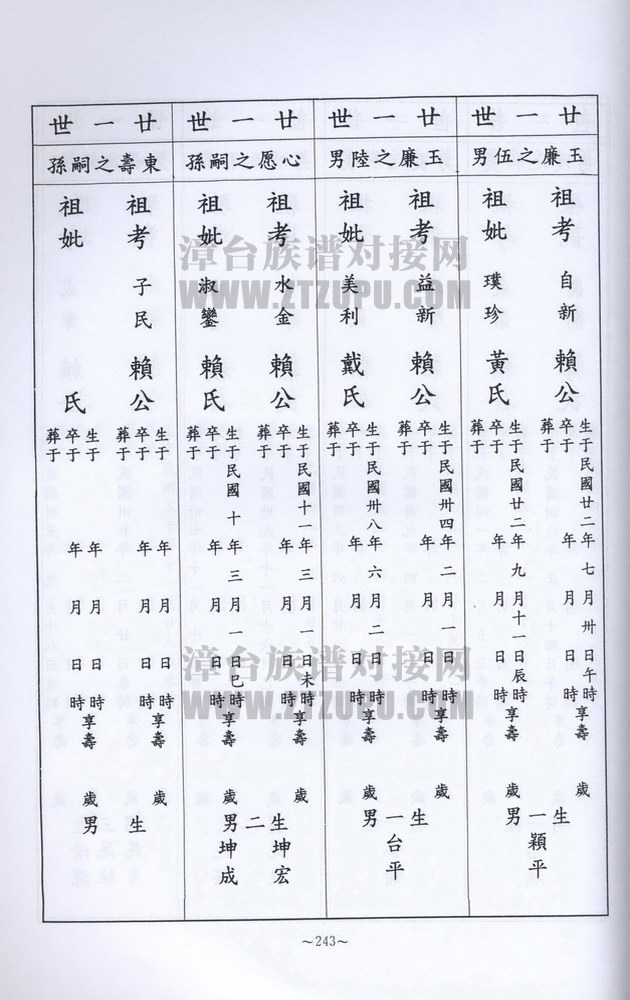 廿一世
玉廉之伍男
祖考 自新 賴公
生于民國廿二年七月卅日午時享壽 歲
卒于 年 月 日 時
葬于
祖妣 璞珍 黃氏
生于民國廿二年九月十一日辰時享壽 歲
卒于 年 月 日 時
葬于
生一男
穎平
廿一世
玉廉之陸男
祖考 益新 賴公
生于民國卅四年二月一日 時享壽 歲
卒于 年 月 日 時
葬于
祖妣 美利 戴氏
生于民國卅八年六月二日 時享壽 歲
卒于 年 月 日 時
葬于
生一男
台平
廿一世
心愿之嗣孫
祖考 水金 賴公
生于民國十一年三月一日未時享壽 歲
卒于 年 月 日 時
葬于
祖妣 淑鑾 賴氏
生于民國十年三月一日巳時享壽 歲
卒于 年 月 日 時
葬于
生二男
坤宏
坤成
廿一世
東壽之嗣孫
祖考 子民 賴公
生于 年 月 日 時享壽 歲
卒于 年 月 日 時
葬于
祖妣 氏
生于 年 月 日 時享壽 歲
卒于 年 月 日 時
葬于
生 男
～243～
漳台族谱对接网
WWW.ZTZUPU.COM
漳台族谱对接网
WWW.ZTZUPU.COM